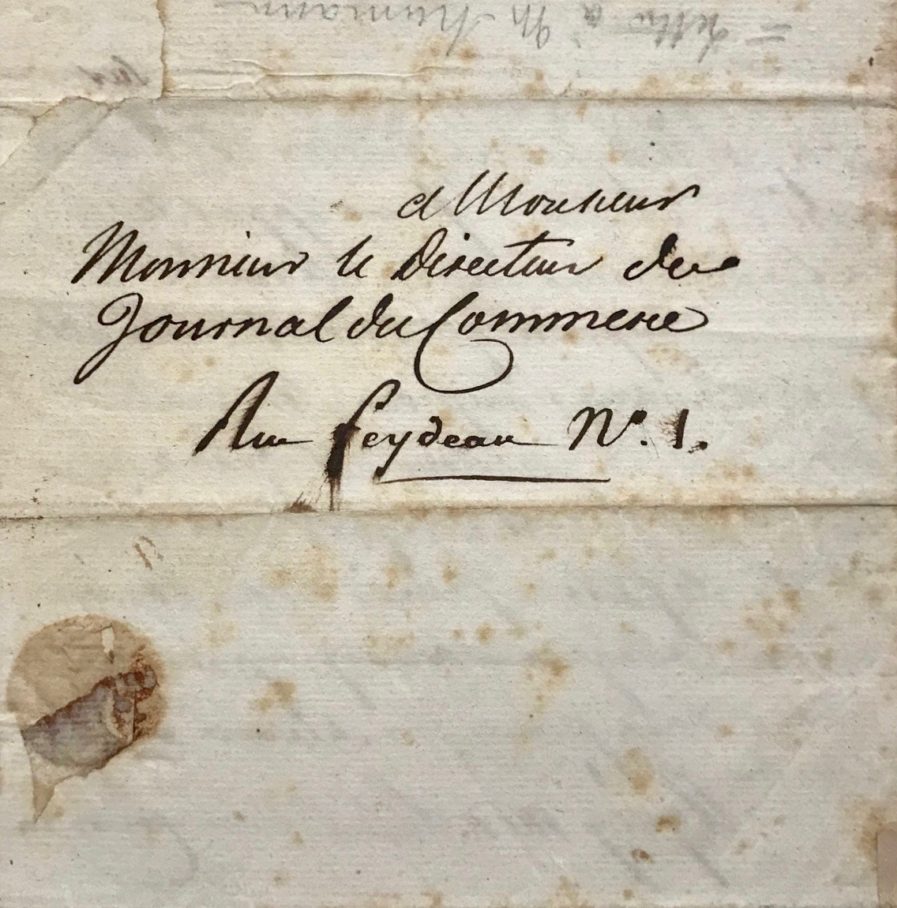 à Monsieur
Monsieur le Directeur du
Journal du Commerce
Rue feydeau N°. 1.
= Lettre à M Humann